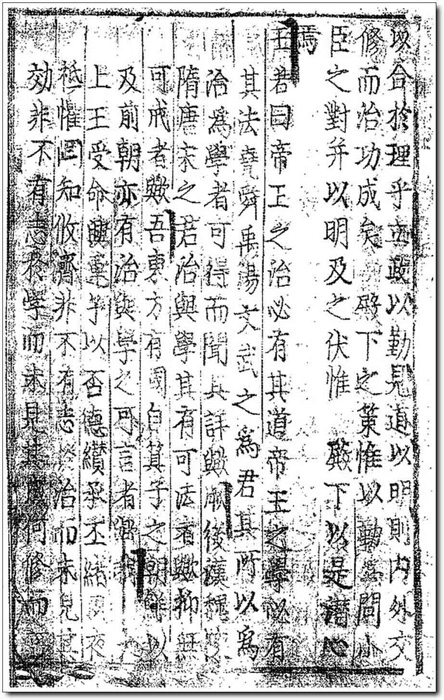 以合於理乎立政以勤見道以明則內外交
修而治功成矣 殿下之策惟以勤爲問小
臣之對并以明及之伏惟 殿下以是潛心
焉
王若曰帝王之治必有其道帝王之學必有
其法堯舜禹湯文武之爲君其所以爲
治爲學者可得而聞其詳歟厥後漢
隋唐宋之君治與學其有可法者歟抑
可戒者歟吾東方有國自箕子之朝鮮以
及前朝亦有治與學之可言者歟
上王受命 以否德纘承丕緖夜
祗懼罔知攸濟非不有志於治而未見其
効非不有志於學而未見其何修而